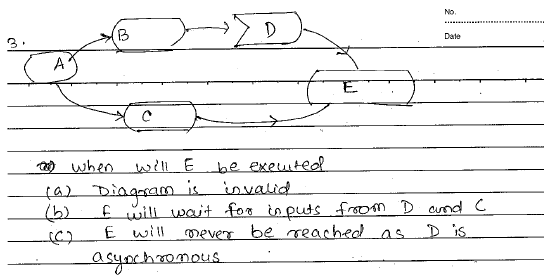 No.
Date
3.
A
B
D
C
E
when will E be executed
(a) Diagram is invalid
(b) E will wait for inputs from D and C
(c) E will never be reached as D is
asynchronous